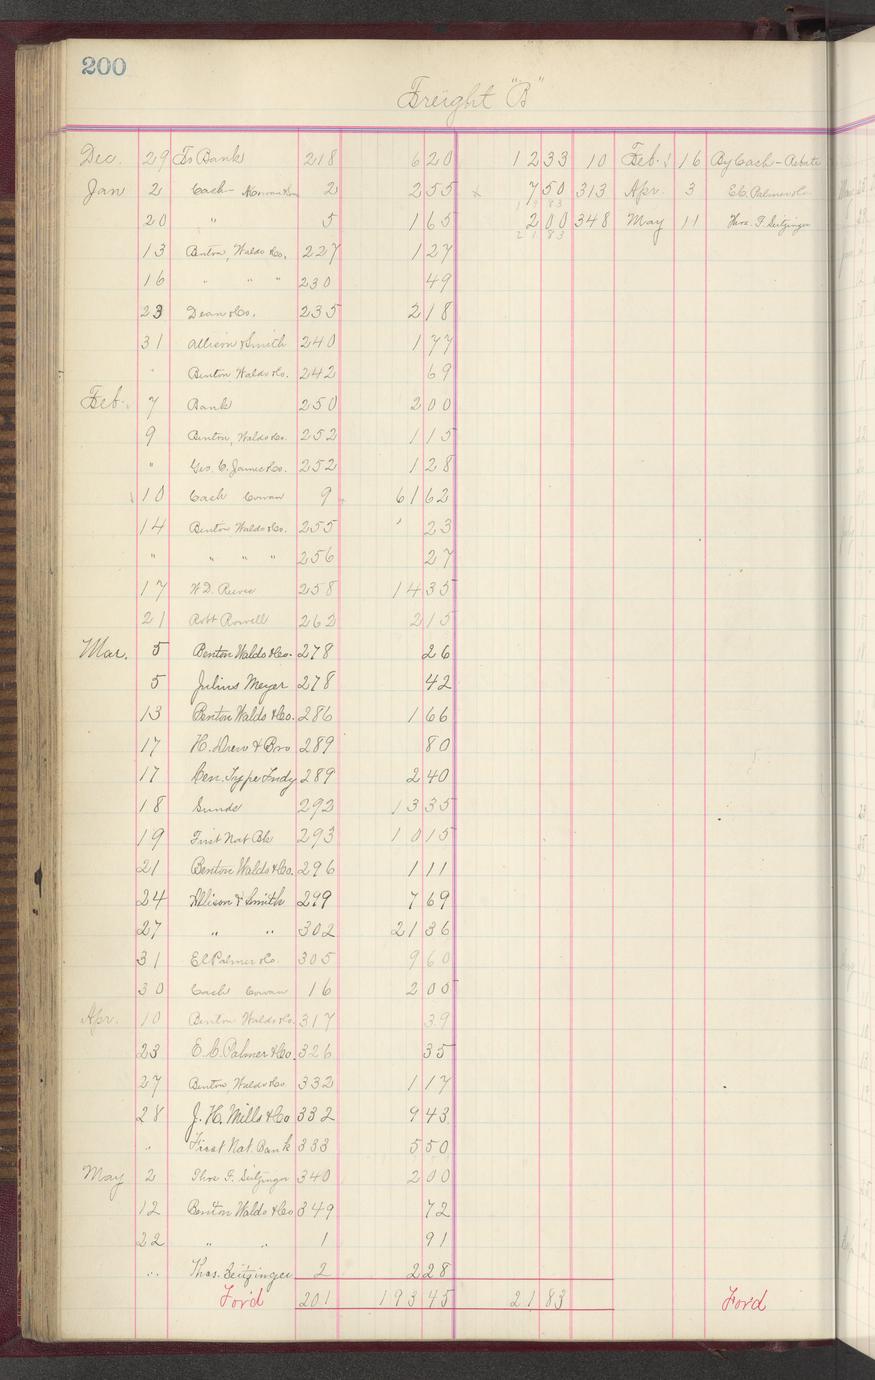 200
Freight "B"
Dec. 29 To Bank 218 6 20 12 33 10 Feb. 16 By Cash - Rebate
Jan 2 Cash - 2 2 55 x 7 50 313 Apr. 3 E.C. Palmer & Co
20 " 5 1 65 2 00 348 May 11 Thos. F. Seitzinger
21 83
13 Benton, Waldo & Co. 227 1 27
16 " " " 230 49
23 Dean & Co. 235 2 18
31 Allison & Smith 240 1 77
" Benton Waldo & Co. 242 69
Feb. 7 Bank 250 2 00
9 Benton, Waldo & Co. 252 1 15
" Geo. C. James & Co. 252 1 28
10 Cash Cowan 9 61 62
14 Benton Waldo & Co. 255 23
" " " " 256 27
17 W.D. Reeves 258 14 35
21 Robt Rowell 262 2 15
Mar. 5 Benton Waldo & Co. 278 26
5 Julius Meyer 278 42
13 Benton Waldo & Co. 286 1 66
17 H. Drew & Bro 289 80
17 Cen. Type Fndy 289 2 40
18 Sunds 292 13 35
19 First Nat Bk 293 10 15
21 Benton Waldo & Co. 296 1 11
24 Allison & Smith 299 7 69
27 " " 302 21 36
31 E C Palmer & Co. 305 9 60
30 Cash Cowan 16 2 05
Apr. 10 Benton Waldo & Co. 317 39
23 E. C. Palmer & Co. 326 35
27 Benton, Waldo & Co 332 1 17
28 J. H. Mills & Co 332 9 43
" First Nat. Bank 333 5 50
May 2 Thos F. Seitzinger 340 2 00
12 Benton Waldo & Co 349 72
22 " " 1 91
" Thos. Seitzinger 2 2 28
For'd 201 193 45 21 83 For'd